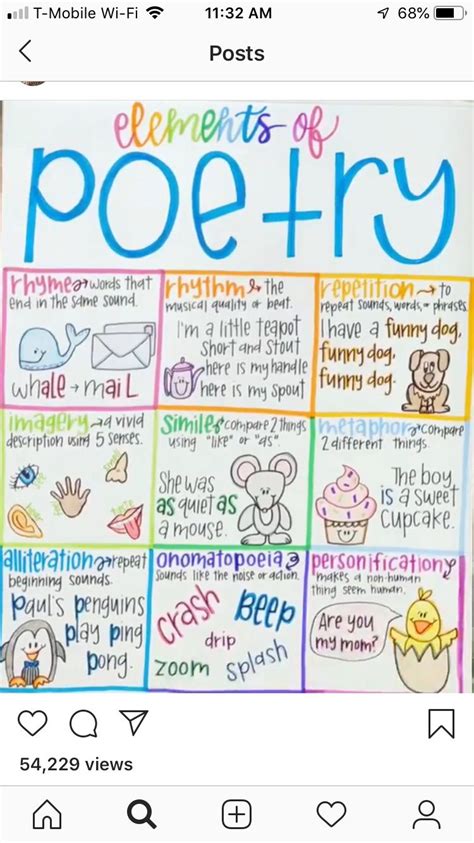 T-Mobile Wi-Fi 11:32 AM 68%
Posts
elements of
Poetry
rhyme → words that
end in the same sound.
whale → mail
rhythm → the
musical quality or beat.
I'm a little teapot
short and stout
here is my handle
here is my spout
repetition → to
repeat sounds, words, or phrases.
I have a funny dog,
funny dog,
funny dog.
imagery → a vivid
description using 5 senses.
simile → compare 2 things
using "like" or "as".
She was
as quiet as
a mouse.
metaphor → compare
2 different things.
The boy
is a sweet
cupcake.
alliteration → repeat
beginning sounds.
Paul's penguins
play ping
pong.
onomatopoeia →
sounds like the noise or action.
crash
BEEP
drip
zoom
splash
personification →
makes a non-human
thing seem human.
Are you
my mom?
54,229 views